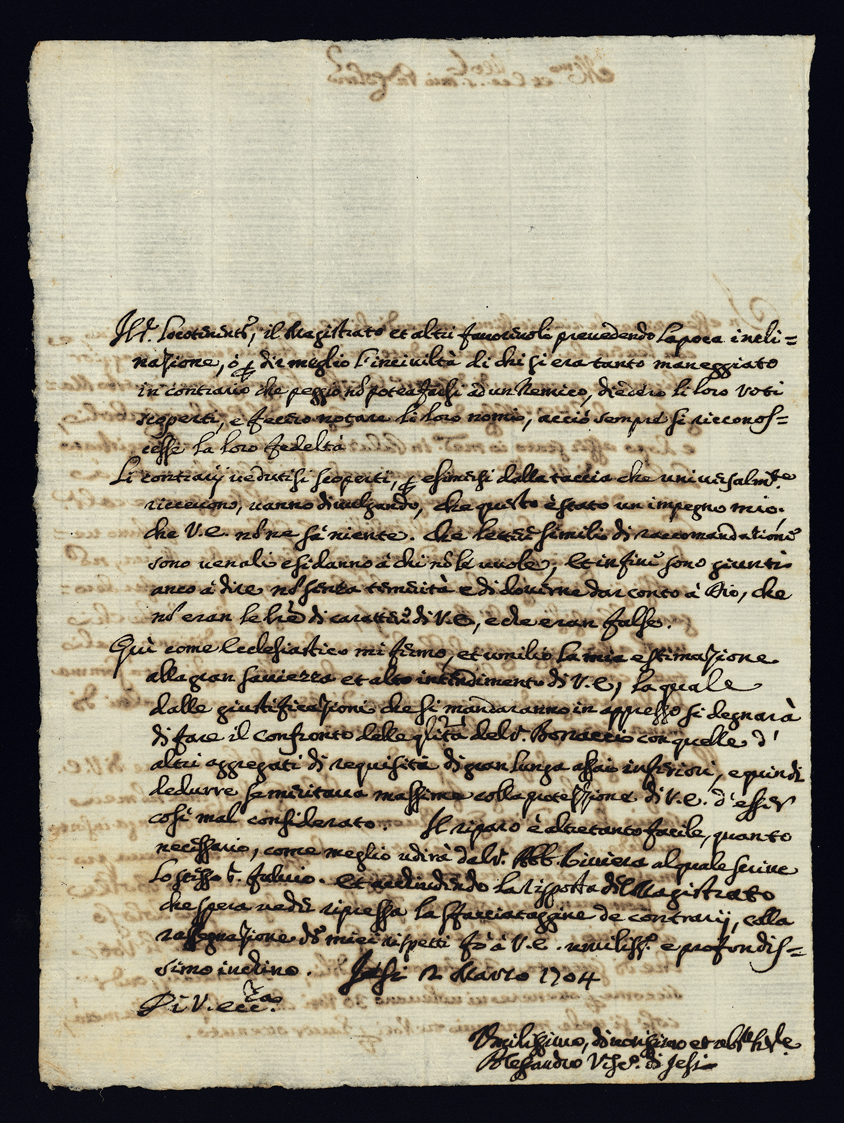 Il S.r Locotenente, il Magistrato et altri favorevoli prevedendo la poca incli=
nazione, ò p dir meglio l'inciviltà di chi si era tanto maneggiato
in contrario che peggio nõ potea farsi ad un Nemico, diedero li loro voti
scoperti, e fecero notare li loro nomi, acciò sempre si riconos=
cesse la loro fedeltà
Li contrarij vedutisi scoperti, p esimersi dalla taccia che universalm.te
ricevono, vanno divulgando, che questo è stato un impegno mio.
che V.E. nõ ne sà niente. Che lettere simili di raccomandatione
sono venali e si danno à chi nõ le vuole; et infine sono giunti
anco à dire nõ senza temerità e di doverne dar conto à Dio, che
nõ eran le l're di carattere di V.E., e che eran false.
Qui come Ecclesiastico mi fermo, et umilio la mia estimazione
alla gran saviezza et alto intendimento di V.E., la quale
dalle giustificazioni che si mandaranno in appresso si degnarà
di fare il confronto delle qlità del S.r Bonaccio con quelle d'
altri aggregati di requisità di gran lunga assai inferiori, e quindi
dedurre se meritava massime colla protezione di V.E. d'esser
così mal considerato. Il riparo è altretanto facile, quanto
necessario, come meglio udirà dal S.r Abb. Riviera al quale scrive
lo stesso S. Fulvio. Et attendendo la risposta del Magistrato
che spera veder ripressa la sfacciataggine de contrarij, colla
rassegnazione de miei rispetti fò à V.E. umiliss.o e profondis=
simo inchino. Jesi 2 Marzo 1704
Di V. Ecc.za
Umilissimo, divotissimo et obl.mo
Alessandro Vesc.o di Jesi